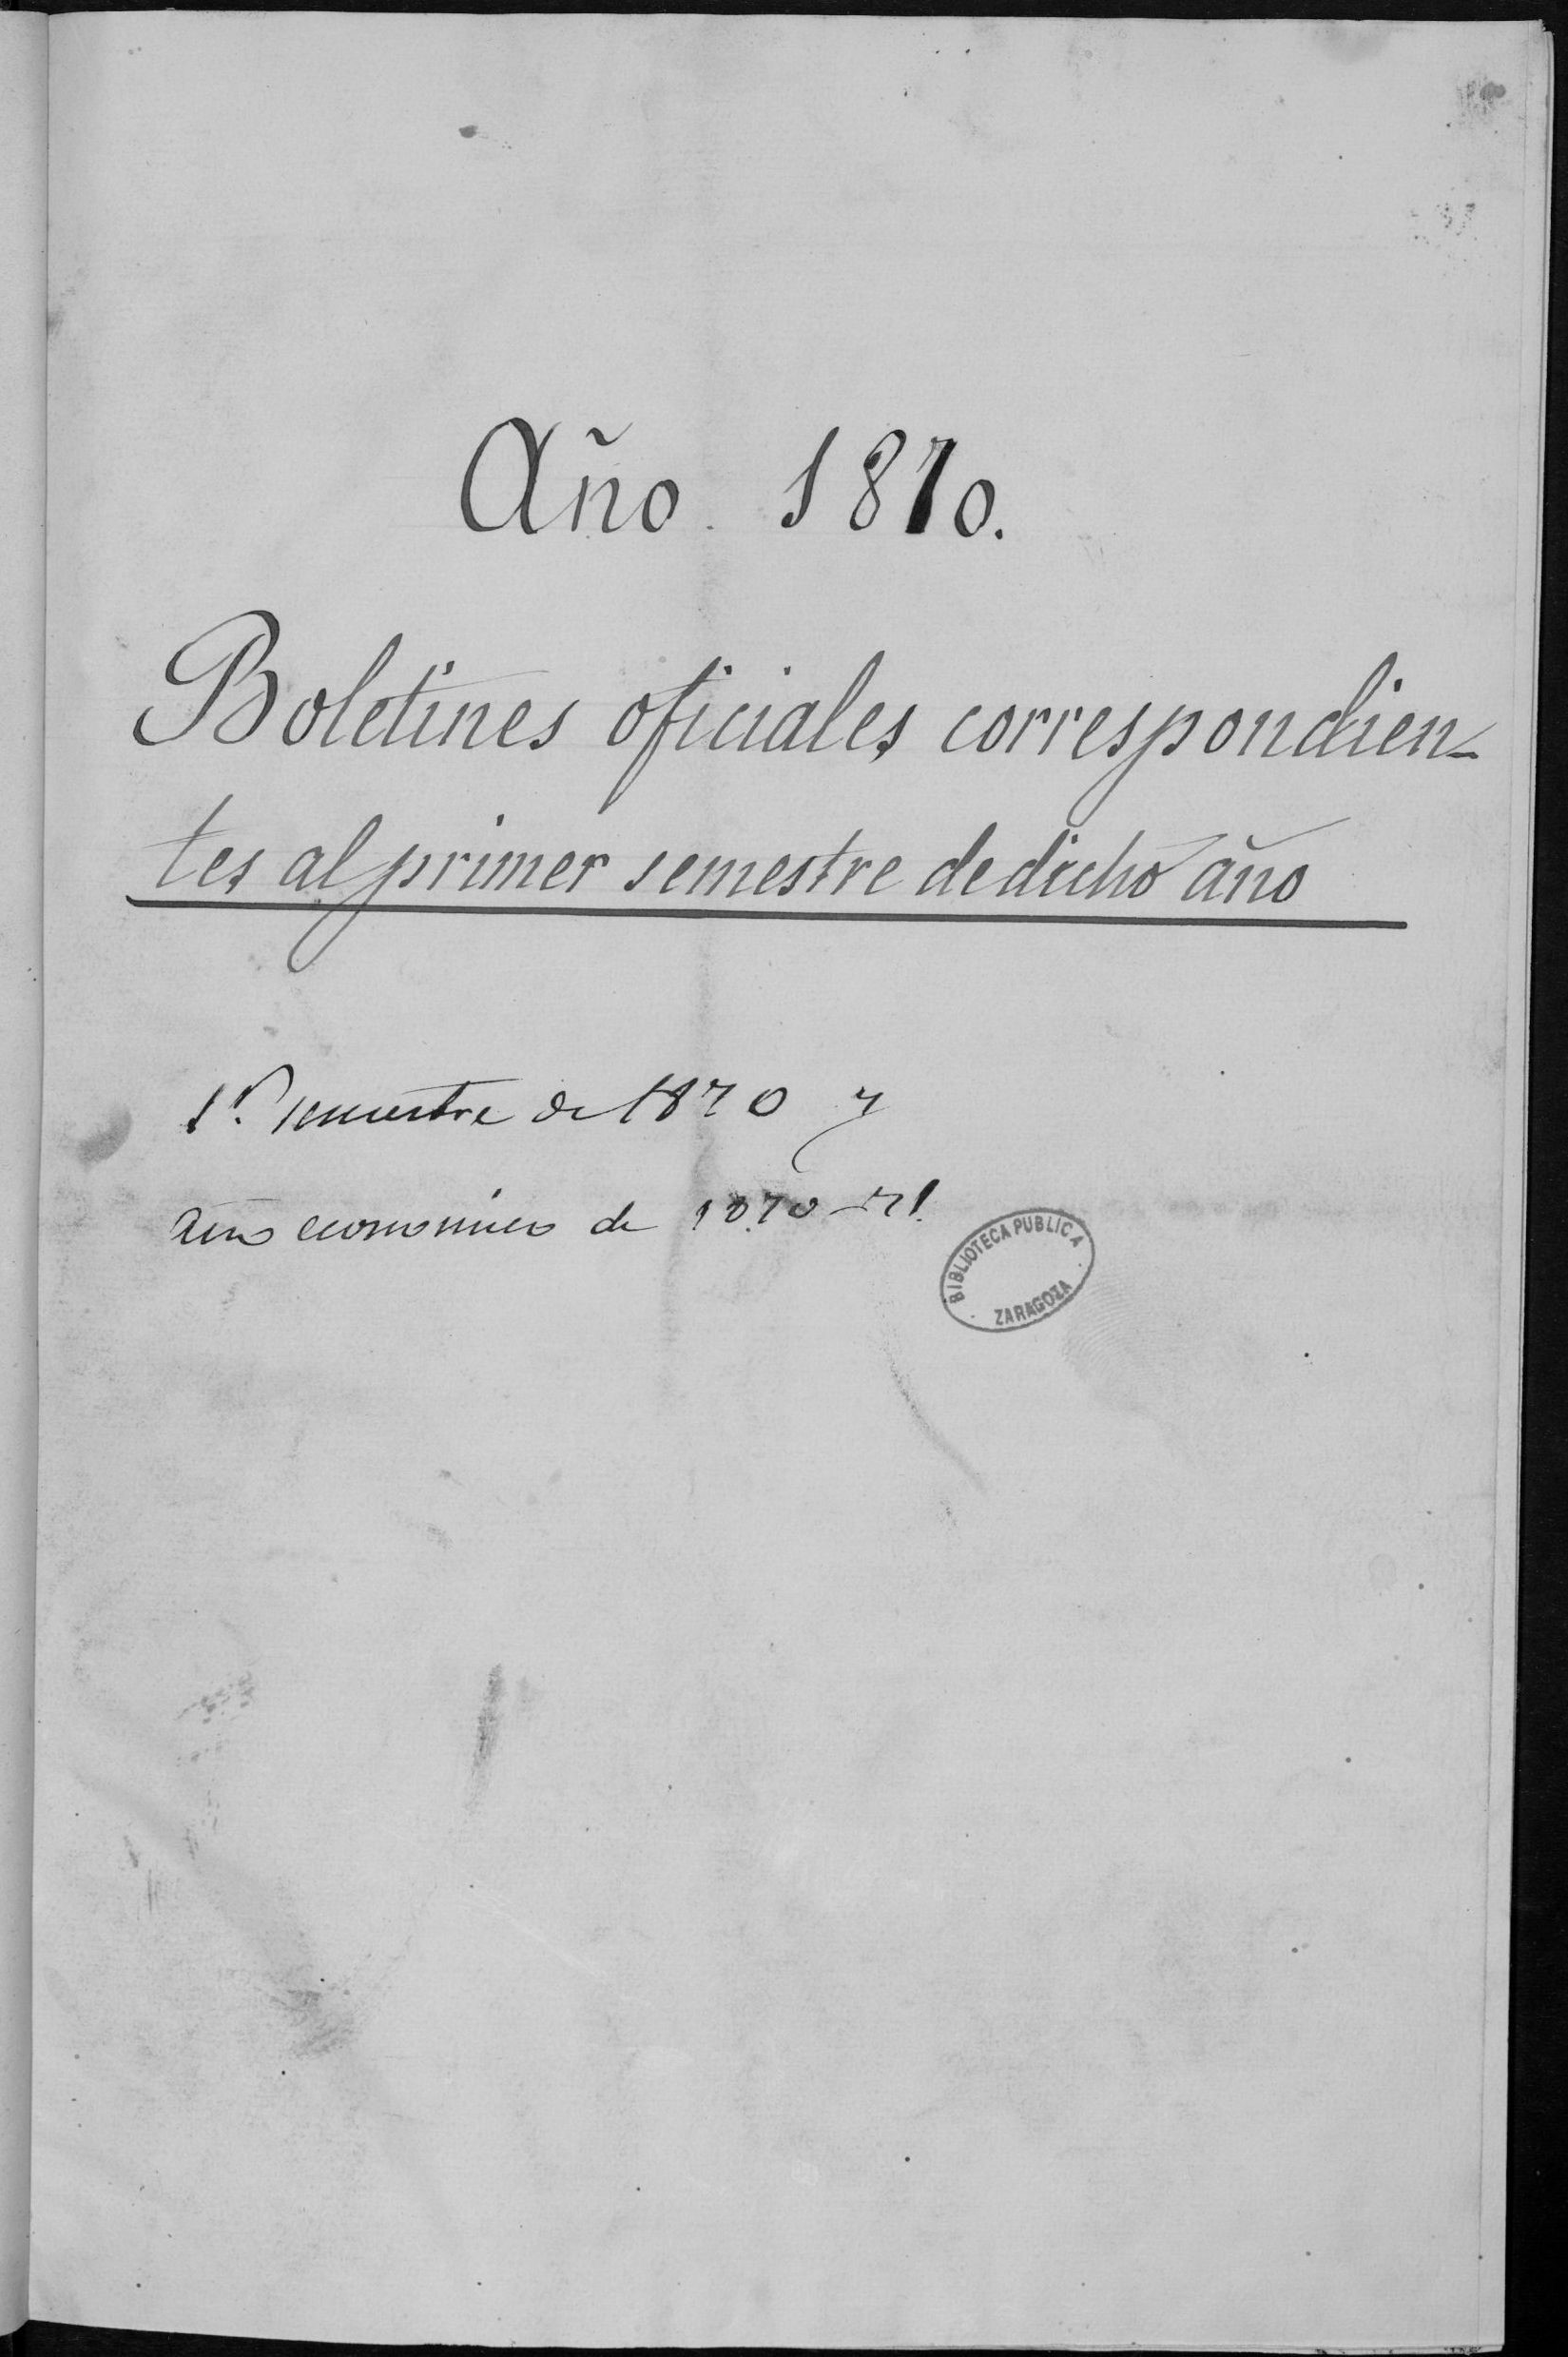 Año 1870.
Boletines oficiales correspondien-
tes al primer semestre de dicho año
1.º semestre de 1870 y
año economico de 1870-71.
BIBLIOTECA PUBLICA
ZARAGOZA